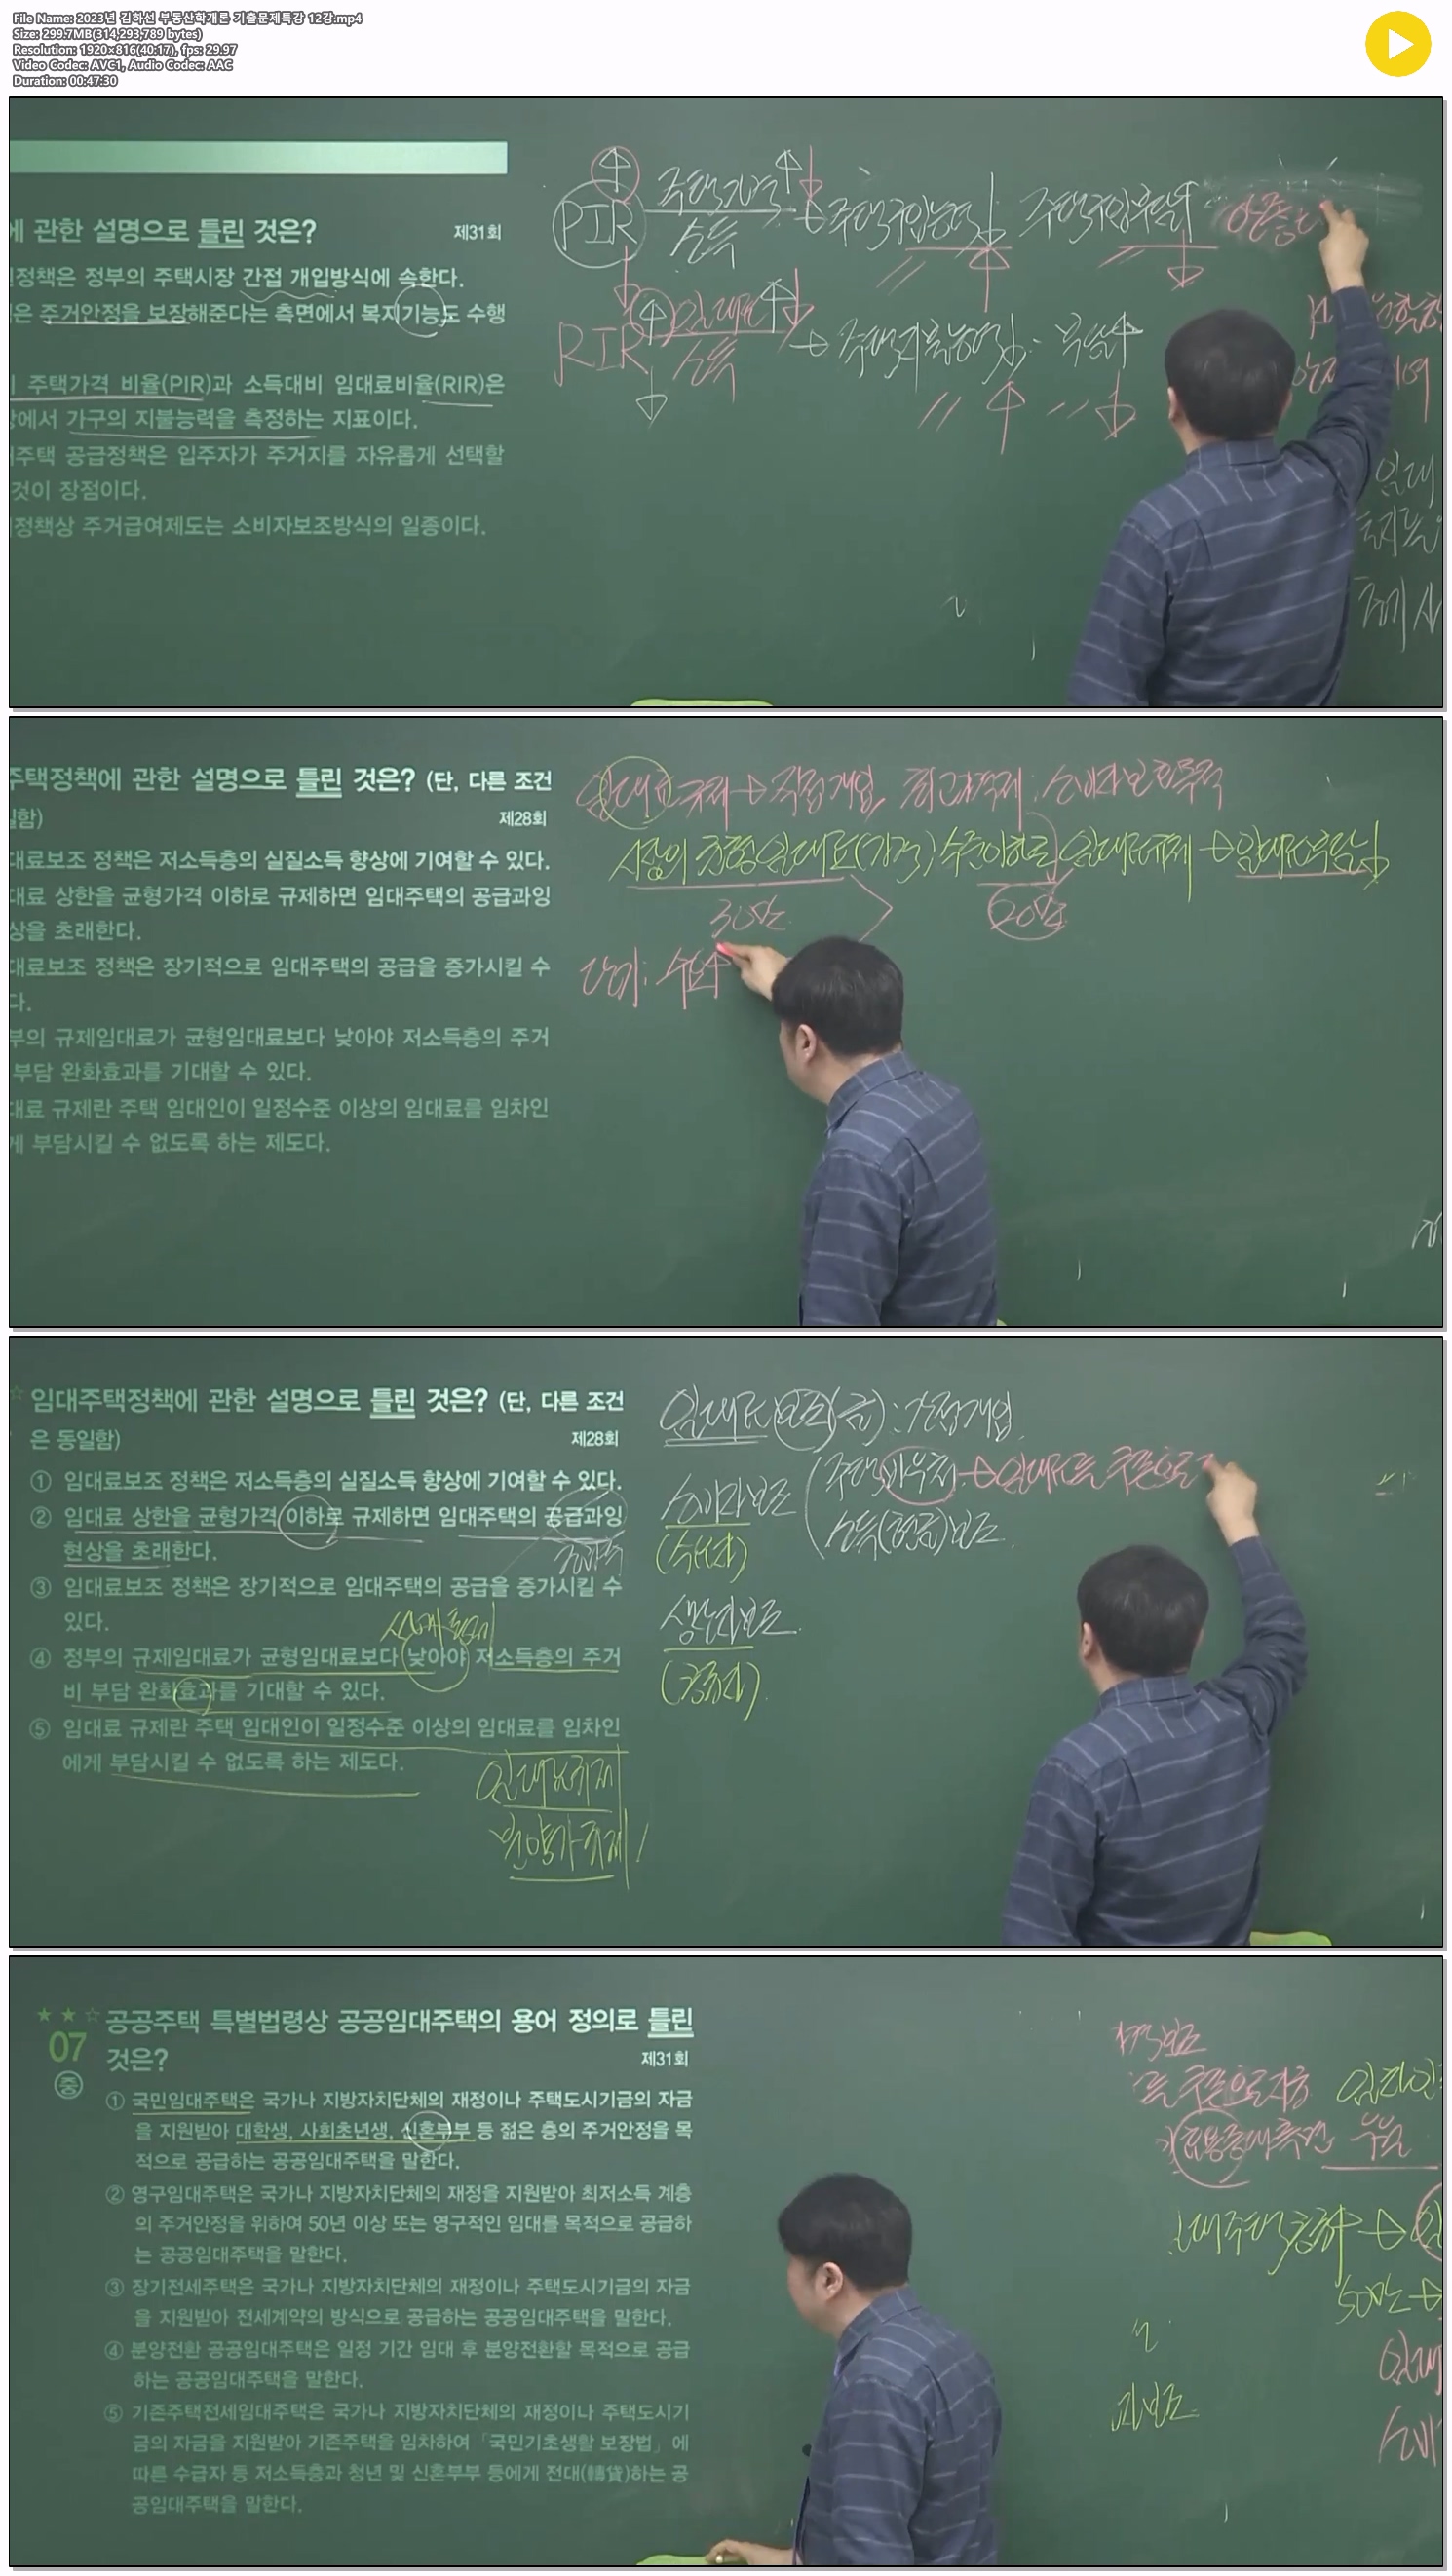 File Name: 2023년 김하선 부동산학개론 기출문제특강 12강.mp4
Size: 299.7MB(314,293,789 bytes)
Resolution: 1920×816(40:17), fps: 29.97
Video Codec: AVC1, Audio Codec: AAC
Duration: 00:47:30
에 관한 설명으로 틀린 것은? 제31회
정책은 정부의 주택시장 간접 개입방식에 속한다.
은 주거안정을 보장해준다는 측면에서 복지기능도 수행
주택가격 비율(PIR)과 소득대비 임대료비율(RIR)은
에서 가구의 지불능력을 측정하는 지표이다.
주택 공급정책은 입주자가 주거지를 자유롭게 선택할
것이 장점이다.
정책상 주거급여제도는 소비자보조방식의 일종이다.
PIR 주택가격 주택구입능력 주택구입부담
소득
RIR 임대료 주택지불능력 부담
소득
임대
주택정책에 관한 설명으로 틀린 것은? (단, 다른 조건
일함) 제28회
대료보조 정책은 저소득층의 실질소득 향상에 기여할 수 있다.
대료 상한을 균형가격 이하로 규제하면 임대주택의 공급과잉
상을 초래한다.
대료보조 정책은 장기적으로 임대주택의 공급을 증가시킬 수
다.
부의 규제임대료가 균형임대료보다 낮아야 저소득층의 주거
부담 완화효과를 기대할 수 있다.
대료 규제란 주택 임대인이 일정수준 이상의 임대료를 임차인
게 부담시킬 수 없도록 하는 제도다.
임대료규제 → 직접개입, 최고가격제 : 소비자보호목적
시장의 균형임대료(가격) 수준이하로 임대료규제 → 임대료부담↓
30만 > 20만
단기: 수요↑
임대주택정책에 관한 설명으로 틀린 것은? (단, 다른 조건
은 동일함) 제28회
① 임대료보조 정책은 저소득층의 실질소득 향상에 기여할 수 있다.
② 임대료 상한을 균형가격 이하로 규제하면 임대주택의 공급과잉
현상을 초래한다.
③ 임대료보조 정책은 장기적으로 임대주택의 공급을 증가시킬 수
있다.
④ 정부의 규제임대료가 균형임대료보다 낮아야 저소득층의 주거
비 부담 완화효과를 기대할 수 있다.
⑤ 임대료 규제란 주택 임대인이 일정수준 이상의 임대료를 임차인
에게 부담시킬 수 없도록 하는 제도다.
임대료규제
분양가규제
임대료보조(금) : 간접개입
소비자보조 주택바우처 → 임대료를 쿠폰으로
(수요자) 소득(현금)보조
생산자보조
(공급자)
★★☆ 공공주택 특별법령상 공공임대주택의 용어 정의로 틀린
07 것은? 제31회
중
① 국민임대주택은 국가나 지방자치단체의 재정이나 주택도시기금의 자금
을 지원받아 대학생, 사회초년생, 신혼부부 등 젊은 층의 주거안정을 목
적으로 공급하는 공공임대주택을 말한다.
② 영구임대주택은 국가나 지방자치단체의 재정을 지원받아 최저소득 계층
의 주거안정을 위하여 50년 이상 또는 영구적인 임대를 목적으로 공급하
는 공공임대주택을 말한다.
③ 장기전세주택은 국가나 지방자치단체의 재정이나 주택도시기금의 자금
을 지원받아 전세계약의 방식으로 공급하는 공공임대주택을 말한다.
④ 분양전환 공공임대주택은 일정 기간 임대 후 분양전환할 목적으로 공급
하는 공공임대주택을 말한다.
⑤ 기존주택전세임대주택은 국가나 지방자치단체의 재정이나 주택도시기
금의 자금을 지원받아 기존주택을 임차하여 「국민기초생활 보장법」에
따른 수급자 등 저소득층과 청년 및 신혼부부 등에게 전대(轉貸)하는 공
공임대주택을 말한다.
를 쿠폰으로 지급
효용증대측면 우월
대주택공급↑ →
50만 →